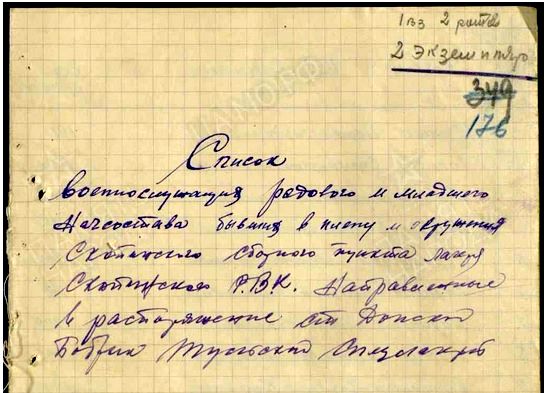 1 вз 2 рота
2 экземпляр
349
176
Список
военнослужащих рядового и младшего
Начсостава бывших в плену и окружения
Скопинского сборного пункта лагеря
Скопинского Р.В.К. Направленные
в распоряжение ст Донской
Бобрик Тульской Спецлагерь